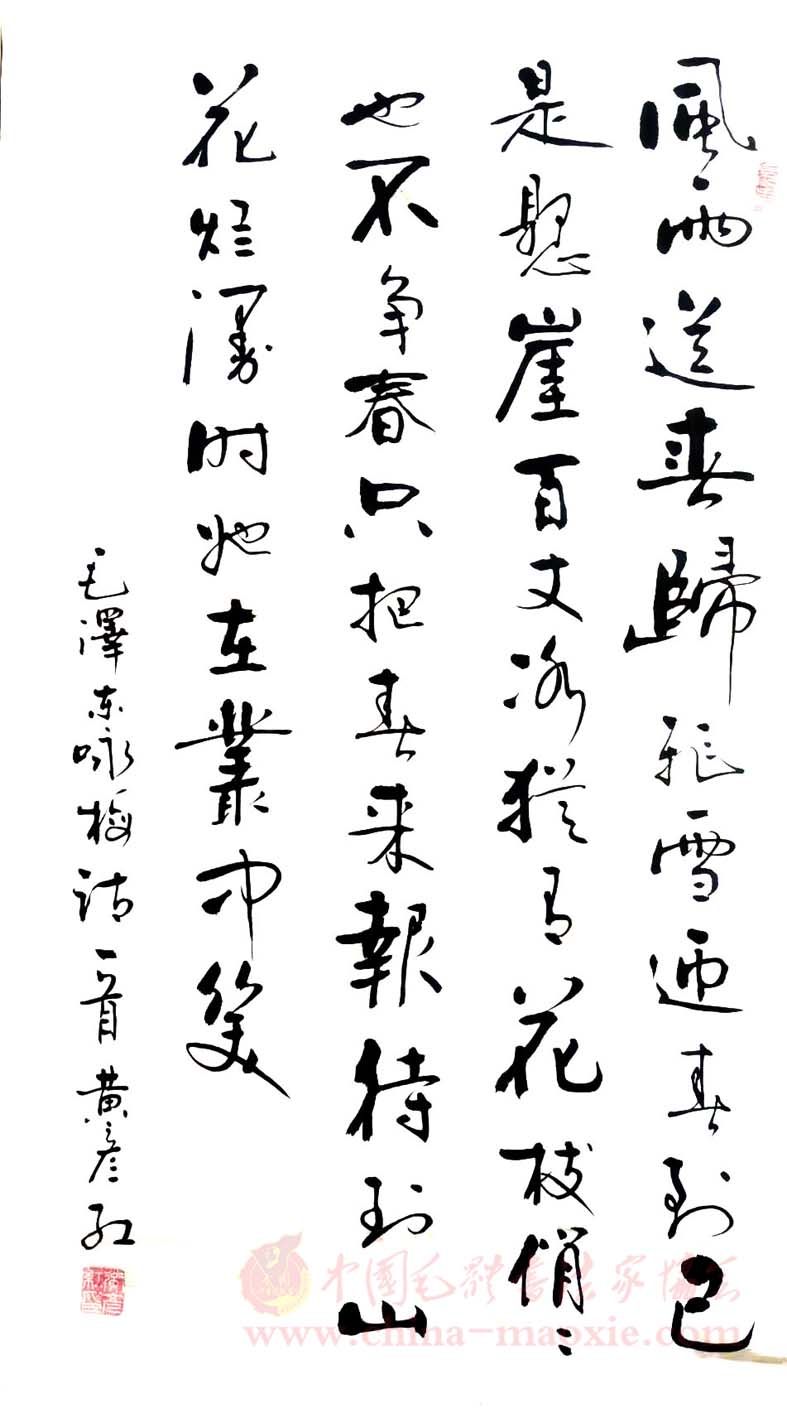 風雨送春歸飛雪迎春到已
是懸崖百丈冰猶有花枝俏〻
也不争春只把春来報待到山
花烂漫时她在叢中笑
毛澤东咏梅诗一首 黄彦红
中国毛體書法家協会
www.china-maoxie.com